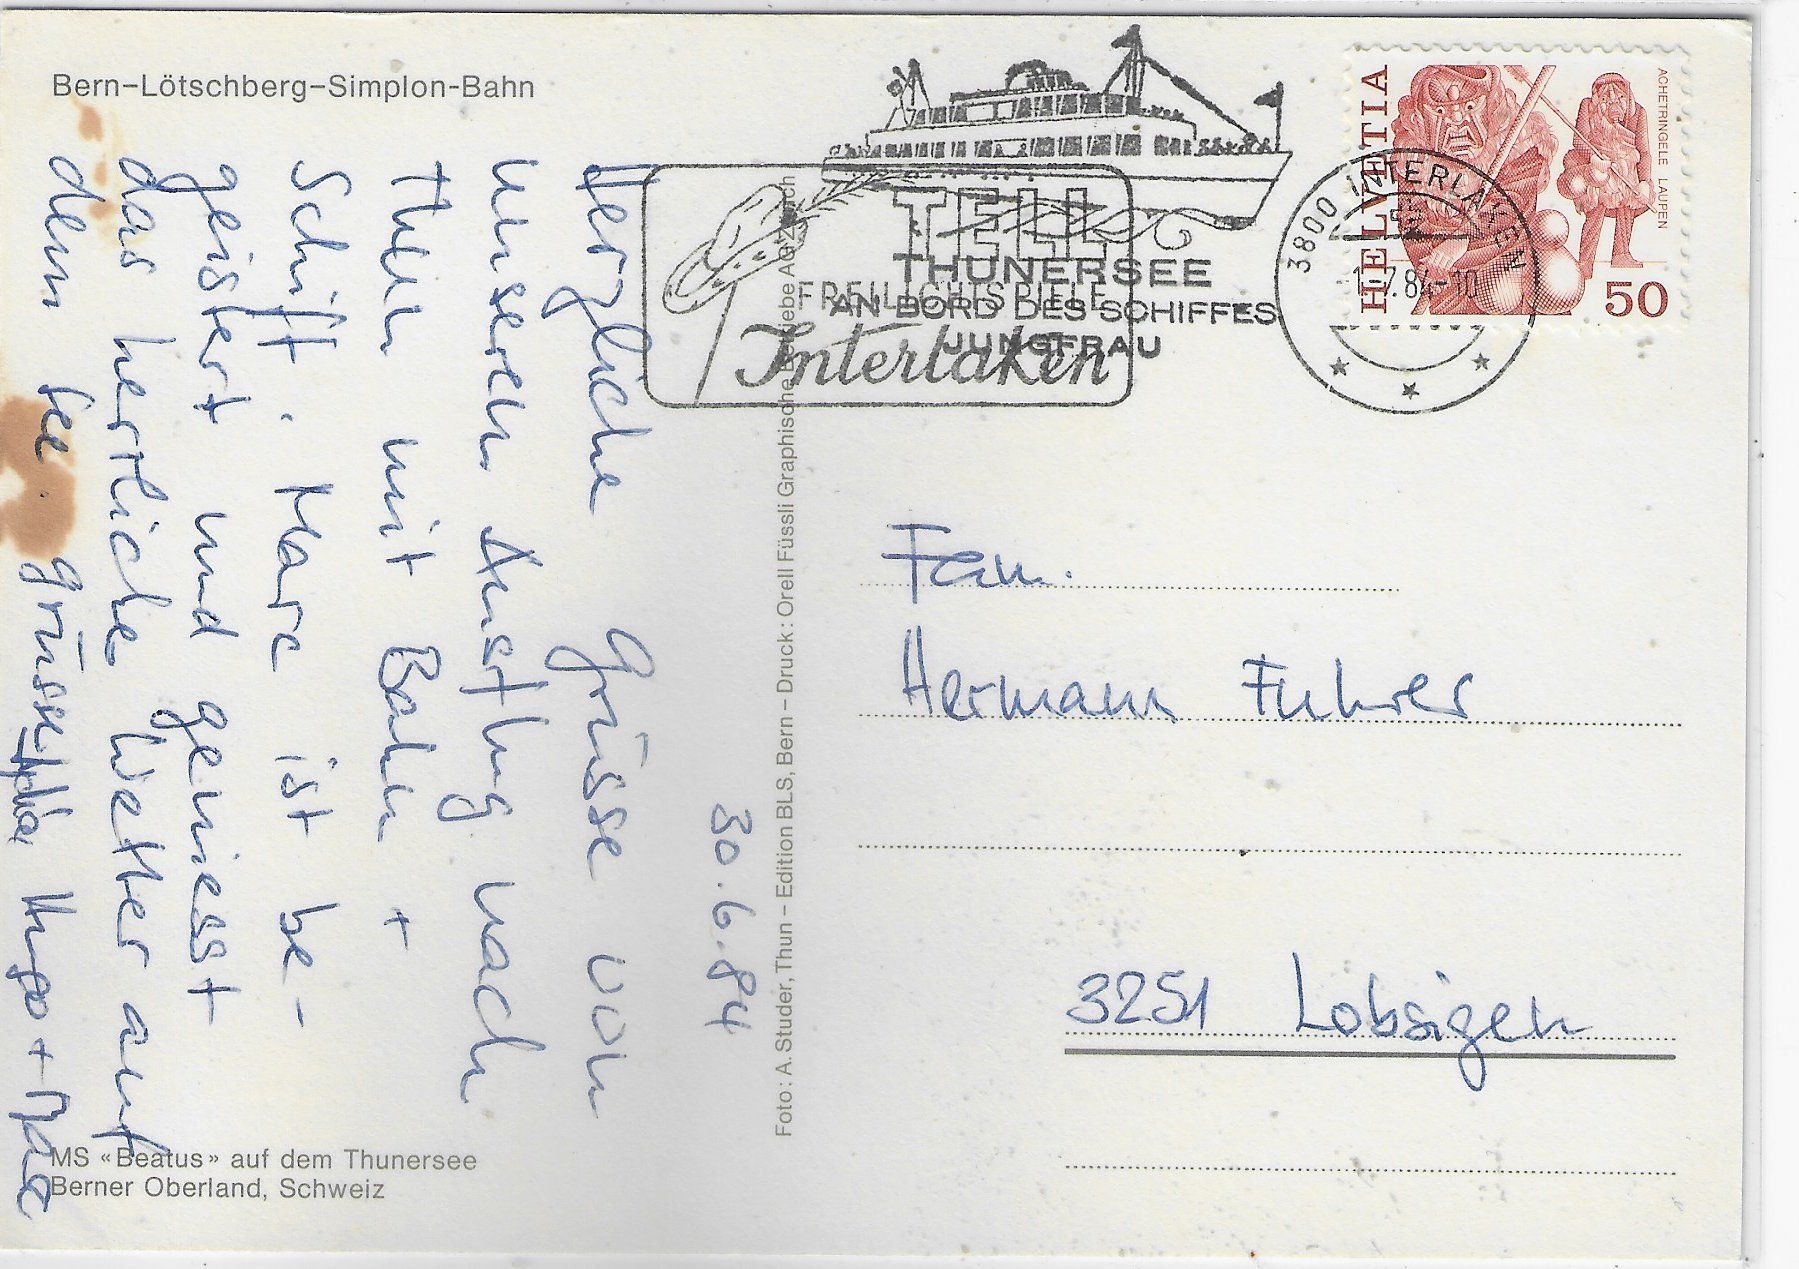 Bern–Lötschberg–Simplon-Bahn
30.6.84
Herzliche Grüsse von
unserem Ausflug nach
Thun mit Bahn +
Schiff. Marc ist be-
geistert und geniesst
das herrliche Wetter auf
dem See. Grüsse
Hugo + Marc
MS «Beatus» auf dem Thunersee
Berner Oberland, Schweiz
Foto: A. Studer, Thun – Edition BLS, Bern – Druck: Orell Füssli Graphische Betriebe AG Zürich
TELL
FREILICHTSPIELE
Interlaken
THUNERSEE
AN BORD DES SCHIFFES
JUNGFRAU
3800 INTERLAKEN
1.7.84-10
HELVETIA
ACHETRINGELE LAUPEN
50
Fam.
Hermann Fuhrer
3251 Lobsigen